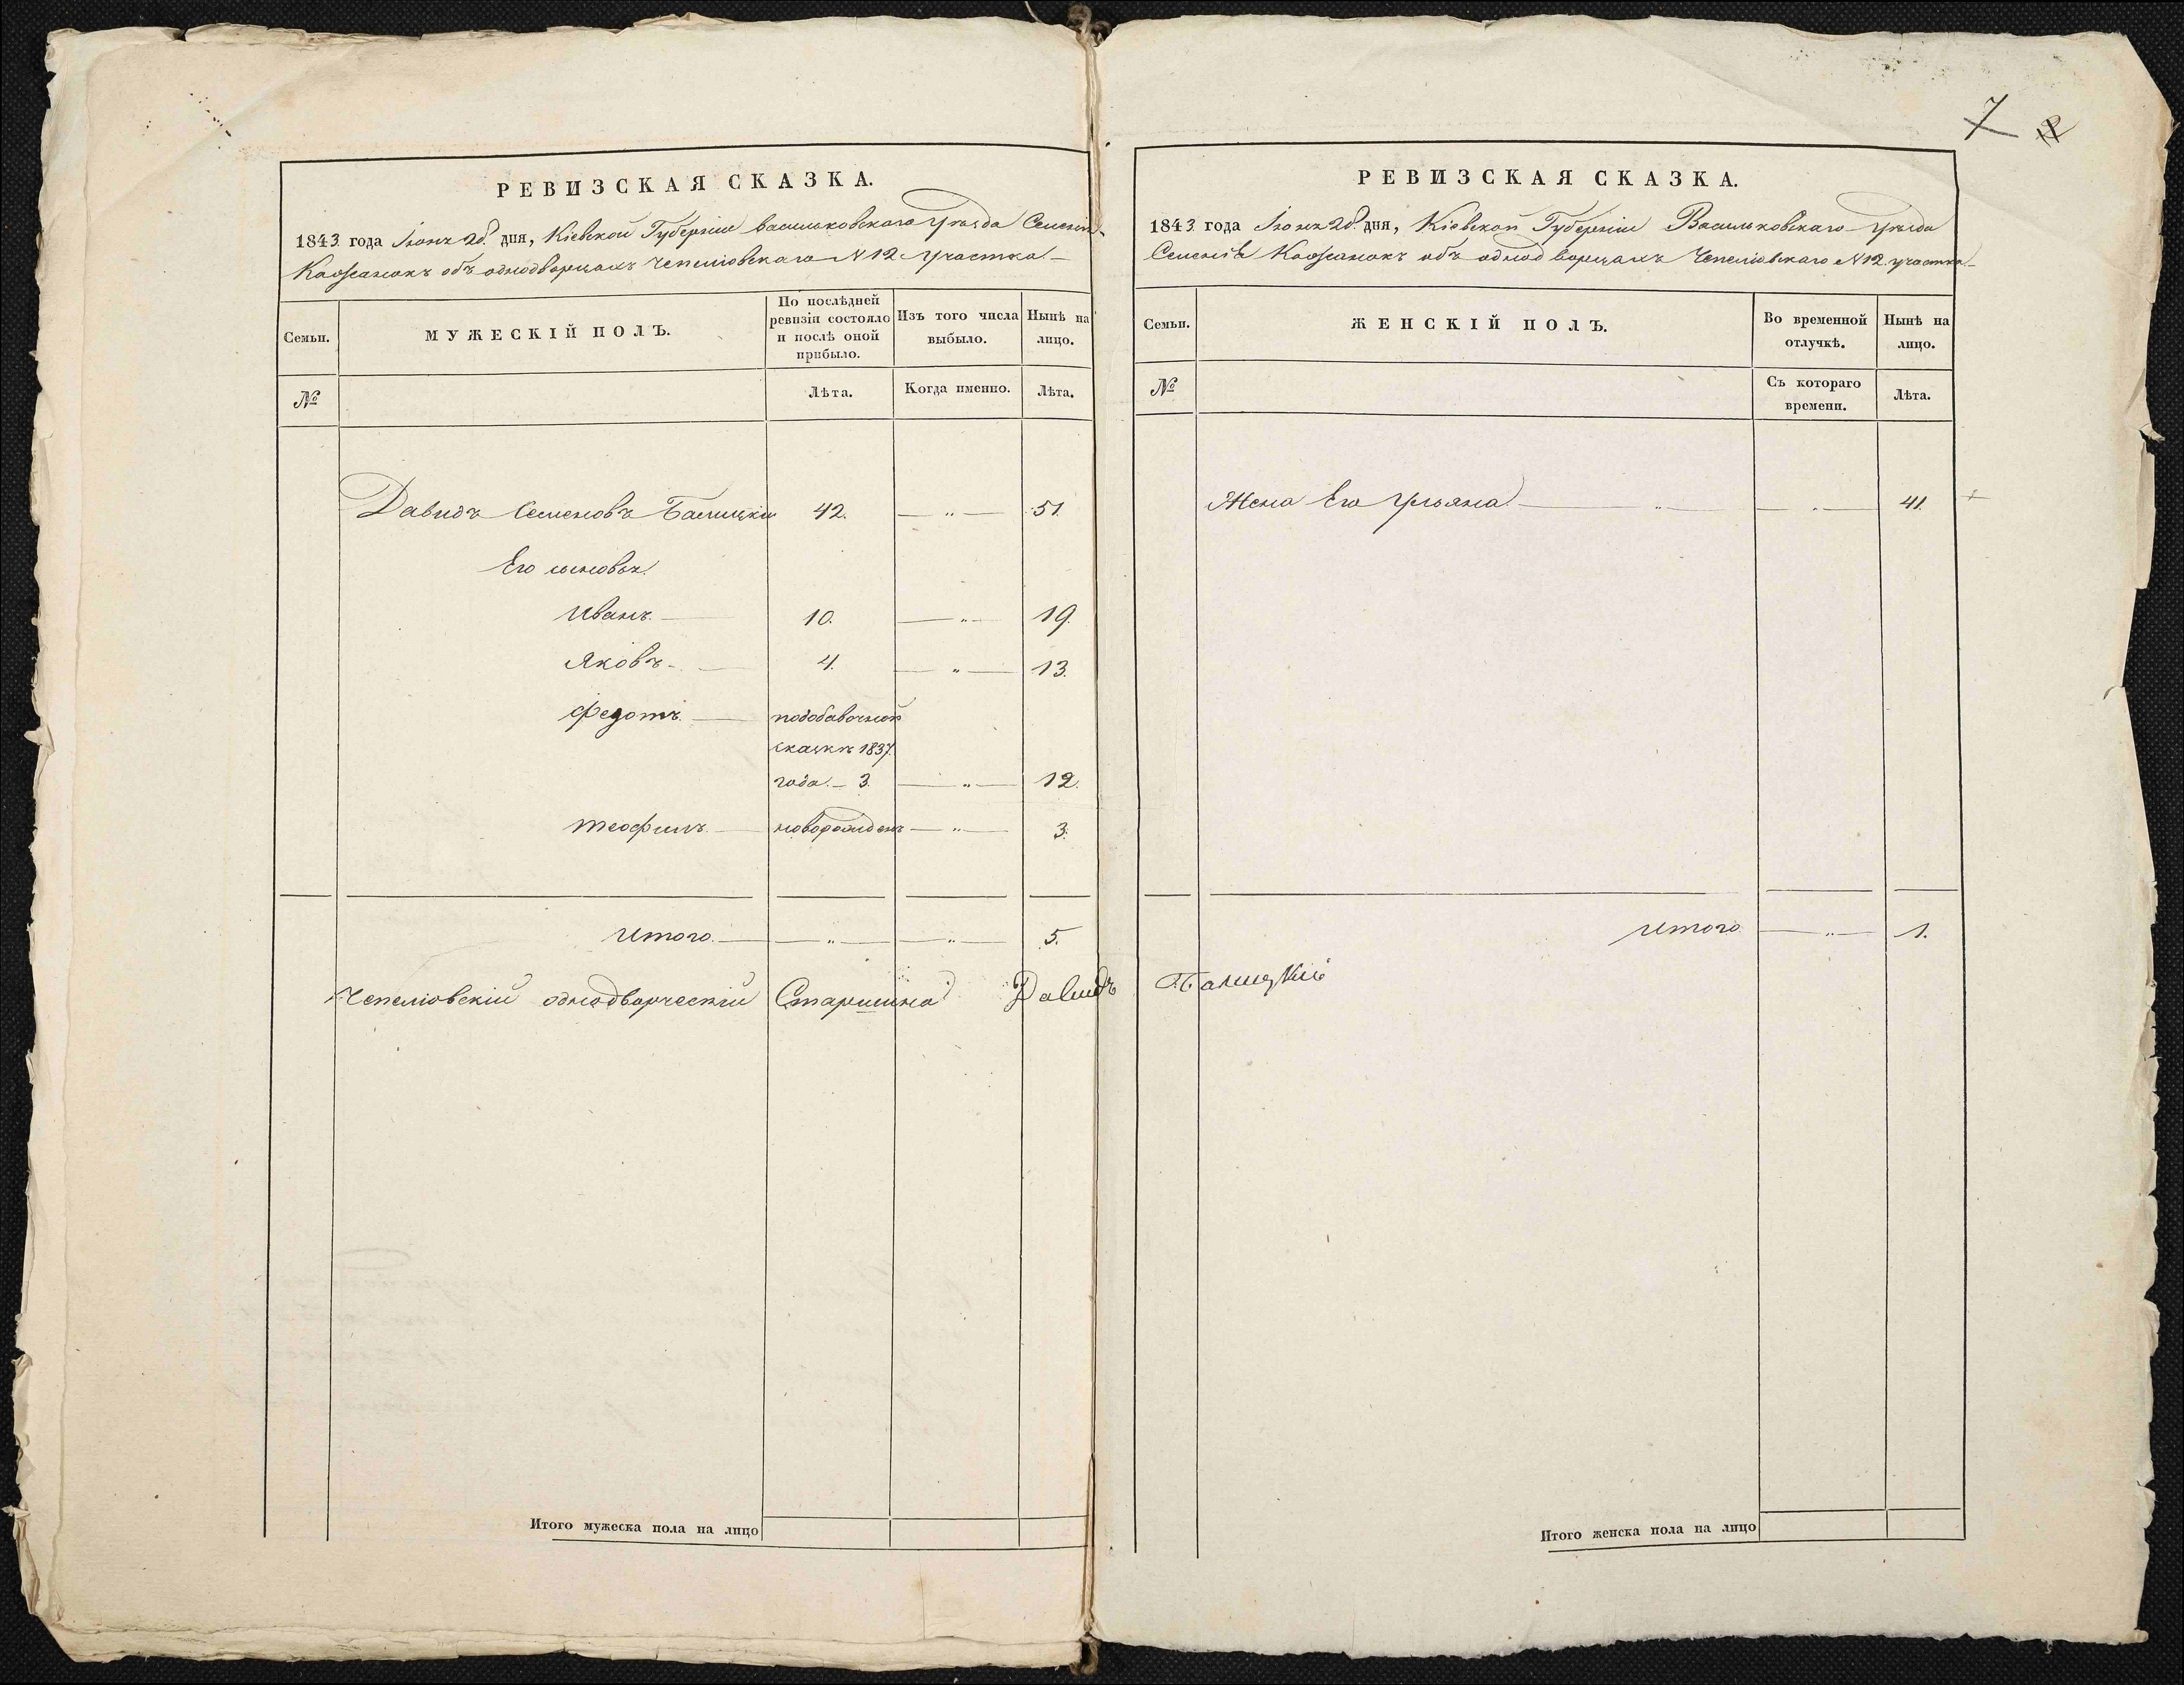 7
РЕВИЗСКАЯ СКАЗКА.
1843 года Іюня 28. дня, Кіевской Губерніи Васильковскаго Уѣзда Селенія
Кожанокъ объ однодворцахъ Чепеліовскаго № 12 участка
Семьи.
МУЖЕСКІЙ ПОЛЪ.
По послѣдней ревизіи состояло и послѣ оной прибыло.
Изъ того числа выбыло.
Нынѣ на лицо.
№
Лѣта.
Когда именно.
Лѣта.
Давидъ Семеновъ Балицкій 42. — „ — 51.
Его сыновья
Иванъ. — 10. — „ — 19.
Яковъ — 4. — „ — 13.
Федотъ — подобавочной
сказкѣ 1837.
года — 3. — „ — 12.
Теофилъ — новорожденъ — „ — 3.
Итого — „ — „ — 5.
Чепеліовскій однодворческій Старшина Давидъ Балицкій
Итого мужеска пола на лицо
РЕВИЗСКАЯ СКАЗКА.
1843 года Іюня 28. дня, Кіевской Губерніи Васильковскаго Уѣзда
Селенія Кожанокъ объ однодворцахъ Чепеліовскаго № 12. участка
Семьи.
ЖЕНСКІЙ ПОЛЪ.
Во временной отлучкѣ.
Нынѣ на лицо.
№
Съ котораго времени.
Лѣта.
Жена Его Ульяна — „ — „ — 41.
Итого — „ — 1.
Итого женска пола на лицо